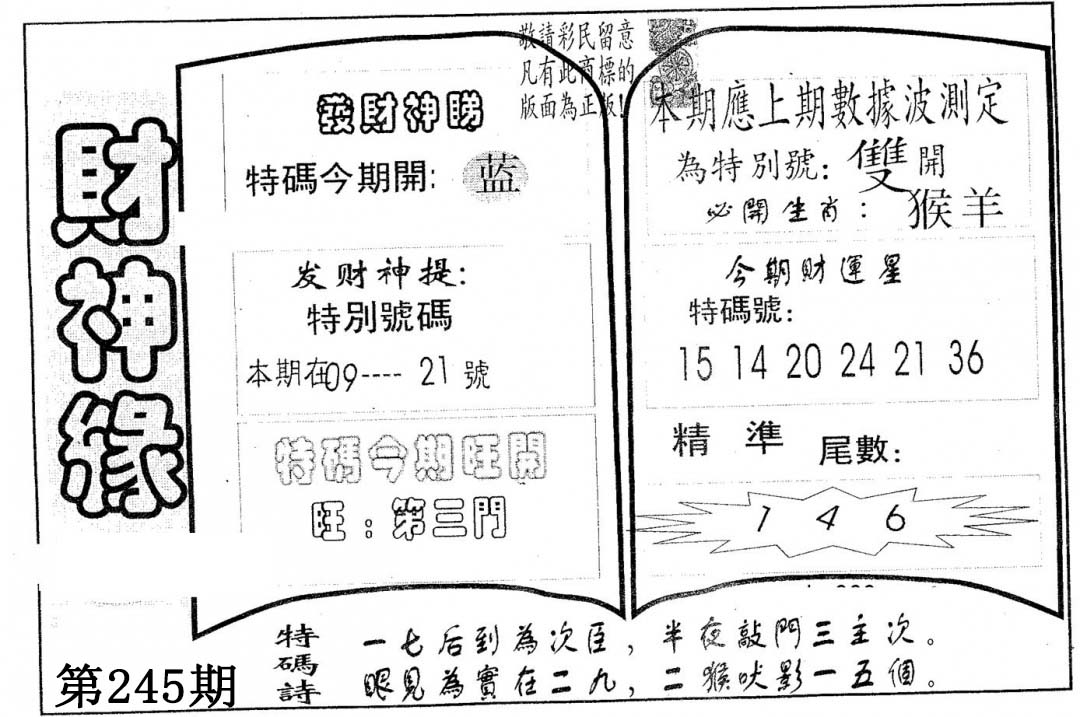 財神緣
敬請彩民留意
凡有此商標的
版面為正版!
發財神睇
特碼今期開: 蓝
发财神提:
特別號碼
本期在09---- 21號
特碼今期旺開
旺:第三門
本期應上期數據波測定
為特別號: 雙開
必開生肖: 猴羊
今期財運星
特碼號:
15 14 20 24 21 36
精準 尾數:
1 4 6
特碼詩
一七后到為次臣,半夜敲門三主次。
眼見為實在二九,二猴吠影一五個。
第245期